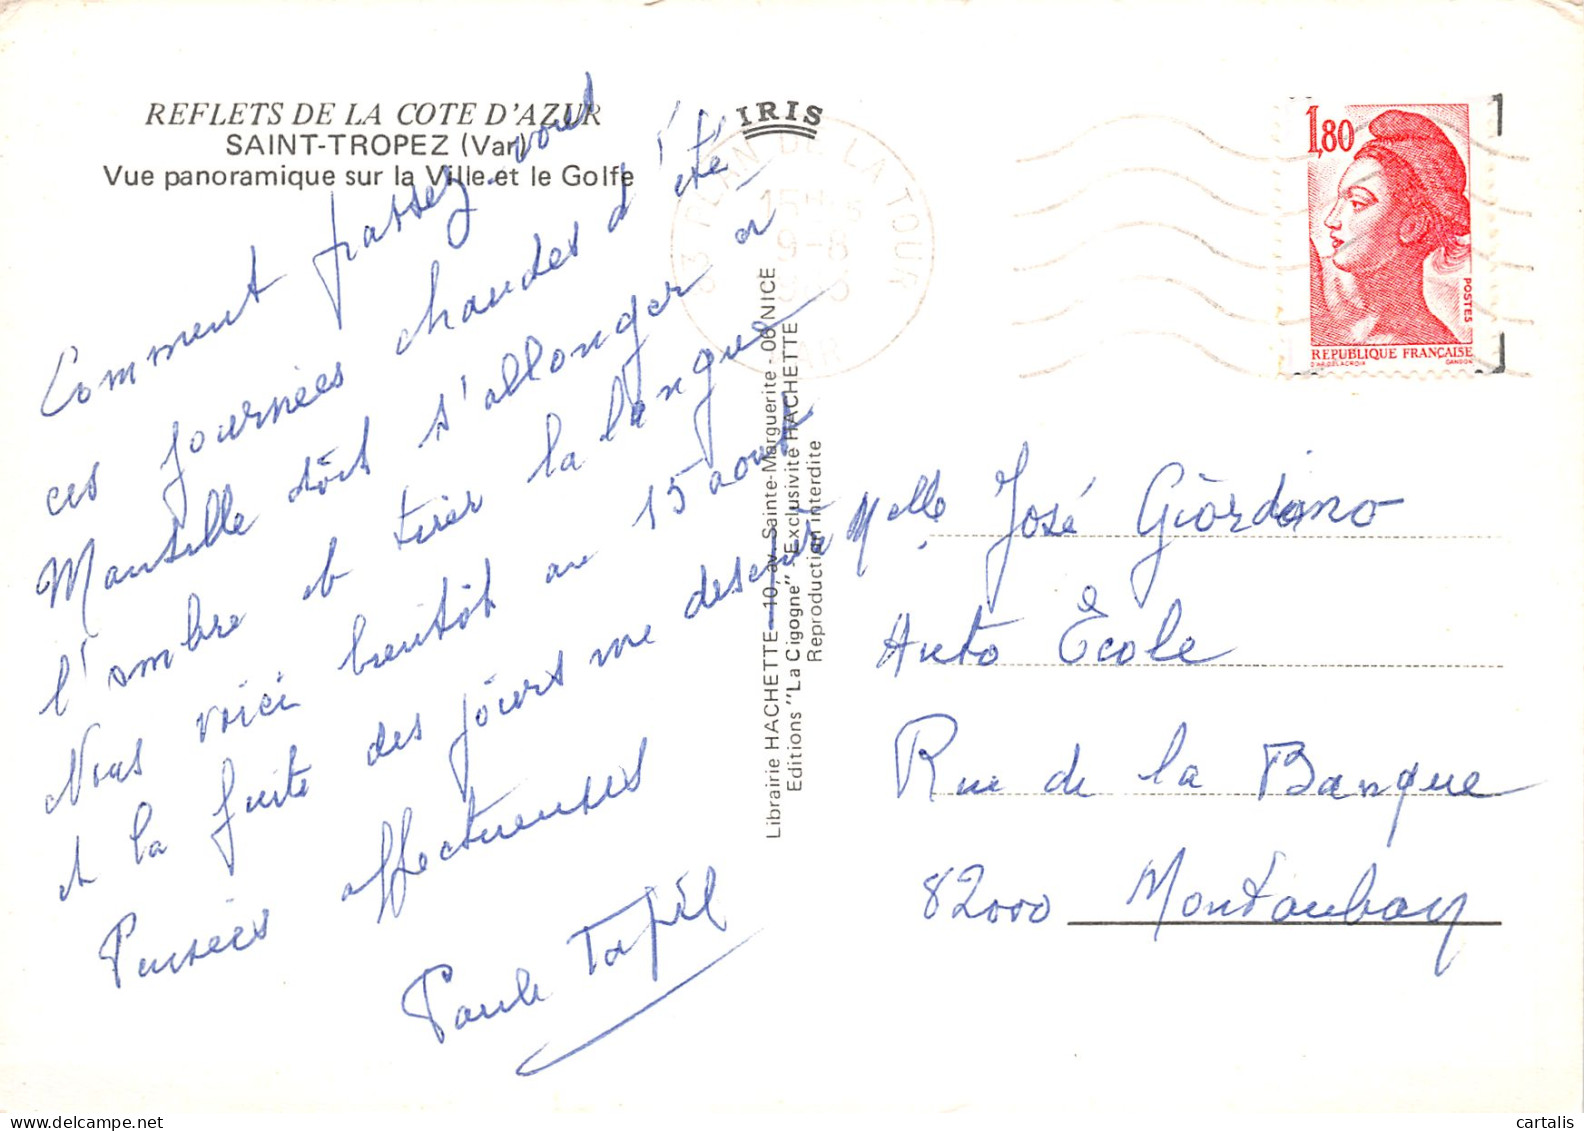 REFLETS DE LA COTE D'AZUR
SAINT-TROPEZ (Var)
Vue panoramique sur la Ville et le Golfe
Comment passez-vous
ces journées chaudes d'été
doit s'allonger à
l'ombre et tirer la langue
Nous voici bientôt au 15 aout
et la fuite des jours me desespère
Pensées affectueuses
Paule
IRIS
Librairie HACHETTE - 10, av. Sainte-Marguerite - 06 NICE
Editions "La Cigogne" - Exclusivité HACHETTE
Reproduction interdite
DE LA TOUR
9-8
VAR
1,80
POSTES
REPUBLIQUE FRANÇAISE
D'APRES DELACROIX GANDON
Melle José Giordano
Auto École
Rue de la Banque
82000 Montauban
cartalis